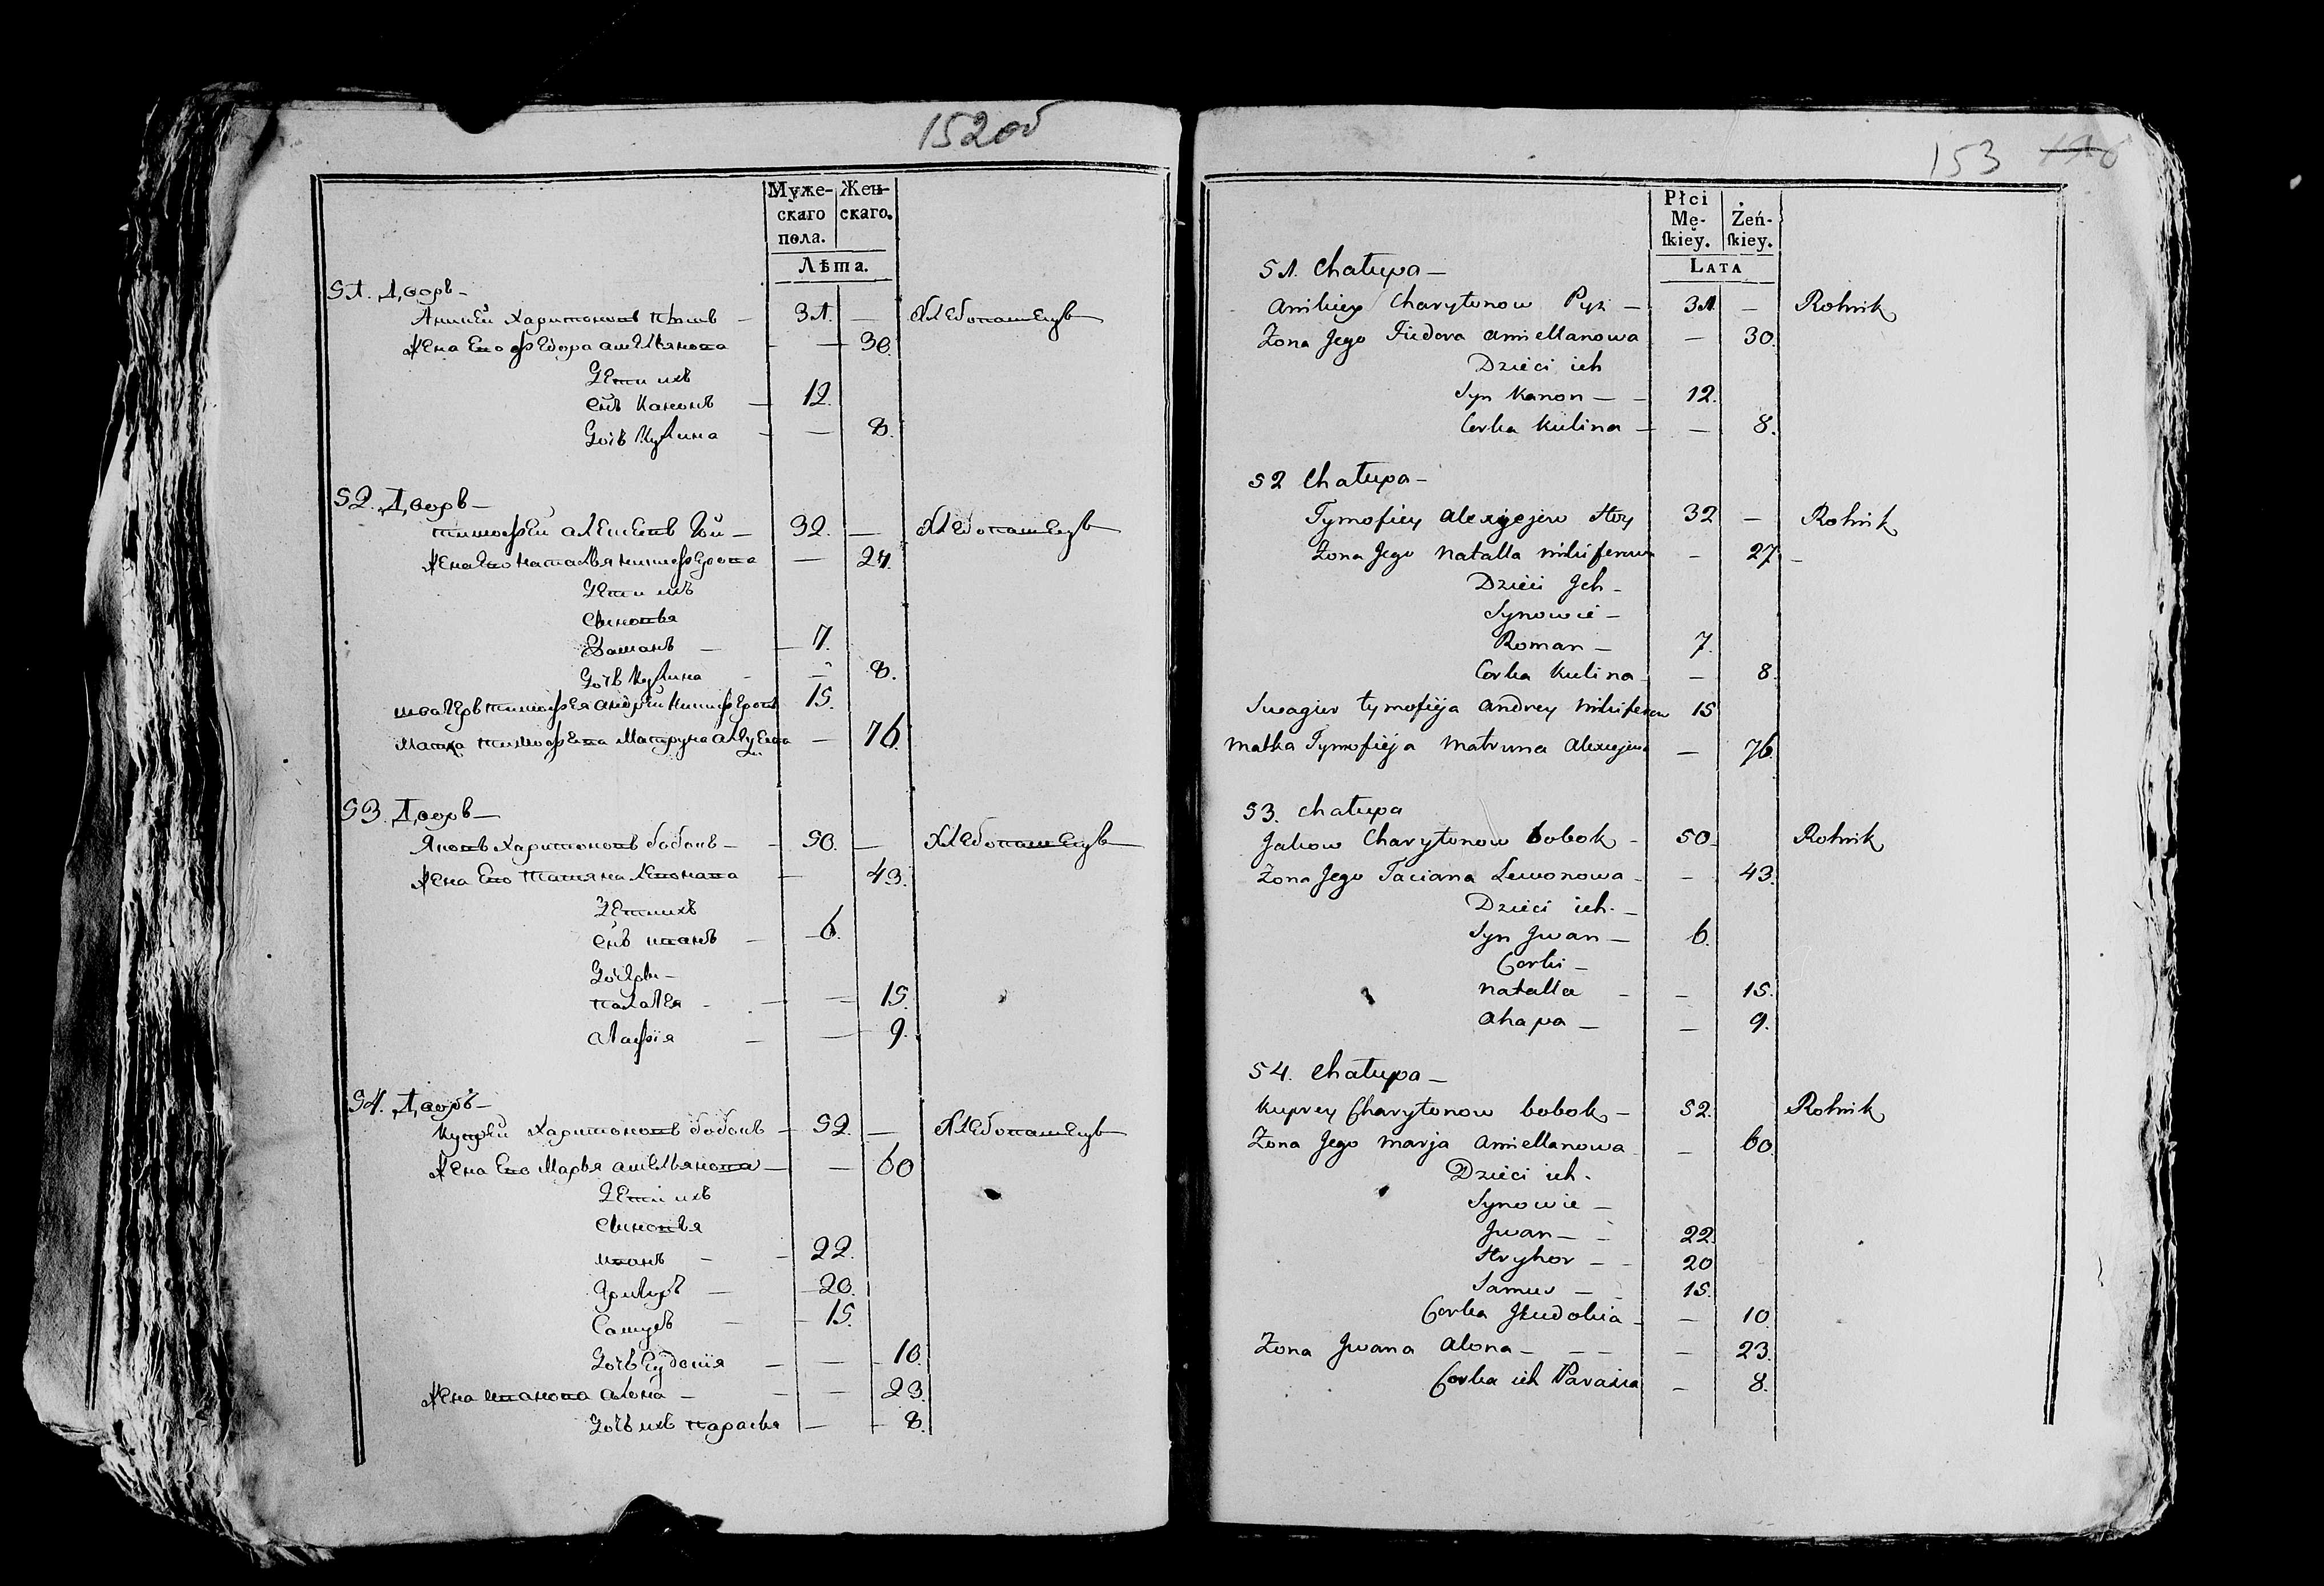 152об
Муже-
скаго
пола.
Жен-
скаго.
Лѣта.
51. Дворъ —
Аникей Харитоновъ — 31. — Хлебопашецъ
Жена Его Федора Амельянова — — 30.
Дети ихъ
Снъ Канонъ — 12.
Дочь Кулина — — 8.
52. Дворъ —
Тимофей Алексеевъ — 32. — Хлебопашецъ
Жена Его Наталья Никиферова — 27.
Дети ихъ
Сыновья
Раманъ — 7.
Дочь Кулина — 8.
Швагеръ Тимофея Андрей Никиферовъ 15.
Матка Тимофеева Матруна — 76.
53. Дворъ —
Яковъ Харитоновъ бобокъ — 50. — Хлебопашецъ
Жена Его Татияна Левонава — 43.
Дети ихъ
Снъ Иванъ — 6.
Дочери —
— — 15.
Агафія — — 9.
54. Дворъ —
Купрей Харитоновъ бобокъ — 52. — Хлебопашецъ
Жена Его Марья Амельянова — — 60
Дети ихъ
Сыновья
Иванъ — — 22.
Григоръ — 20.
Самусь — 15.
Дочь Еудокія — — 10.
Жена Иванова Алена — — 23.
Дочь ихъ Параска — — 8.
153
Płci
Mę-
skiey.
Żeń-
skiey.
LATA
51. Chałupa —
Anikiey Charytonow Pyz — 31. — Rolnik
Zona Jego Fiedora Amiellanowa — 30.
Dzieci ich
Syn Kanon — — 12.
Corka Kulina — — 8.
52 Chałupa —
Tymofiey Alexiejew 32 — Rolnik
Zona Jego Natalla Nikiferowa — 27 —
Dzieci Jch —
Synowie —
Roman — 7.
Corka Kulina — — 8.
Swagier Tymofieja Andrey Nikiferow 15
Matka Tymofieja Matruna Alexiejewa — 76.
53. Chałupa
Jakow Charytonow bobok — 50. Rolnik
Zona Jego Taciana Lewonowa — — 43.
Dzieci ich. —
Syn Jwan — 6.
Corki —
Natalla — — 15.
Ahapa — — 9.
54. Chałupa —
Kuprey Charytonow bobok — 52. Rolnik
Zona Jego Marja Amiellanowa — 60.
Dzieci ich.
Synowie —
Jwan — — 22.
Hryhor — — 20
Samus — — 15.
Corka Jeudokia — — 10
Zona Jwana Alona — — — — 23.
Corka ich Parasia — 8.